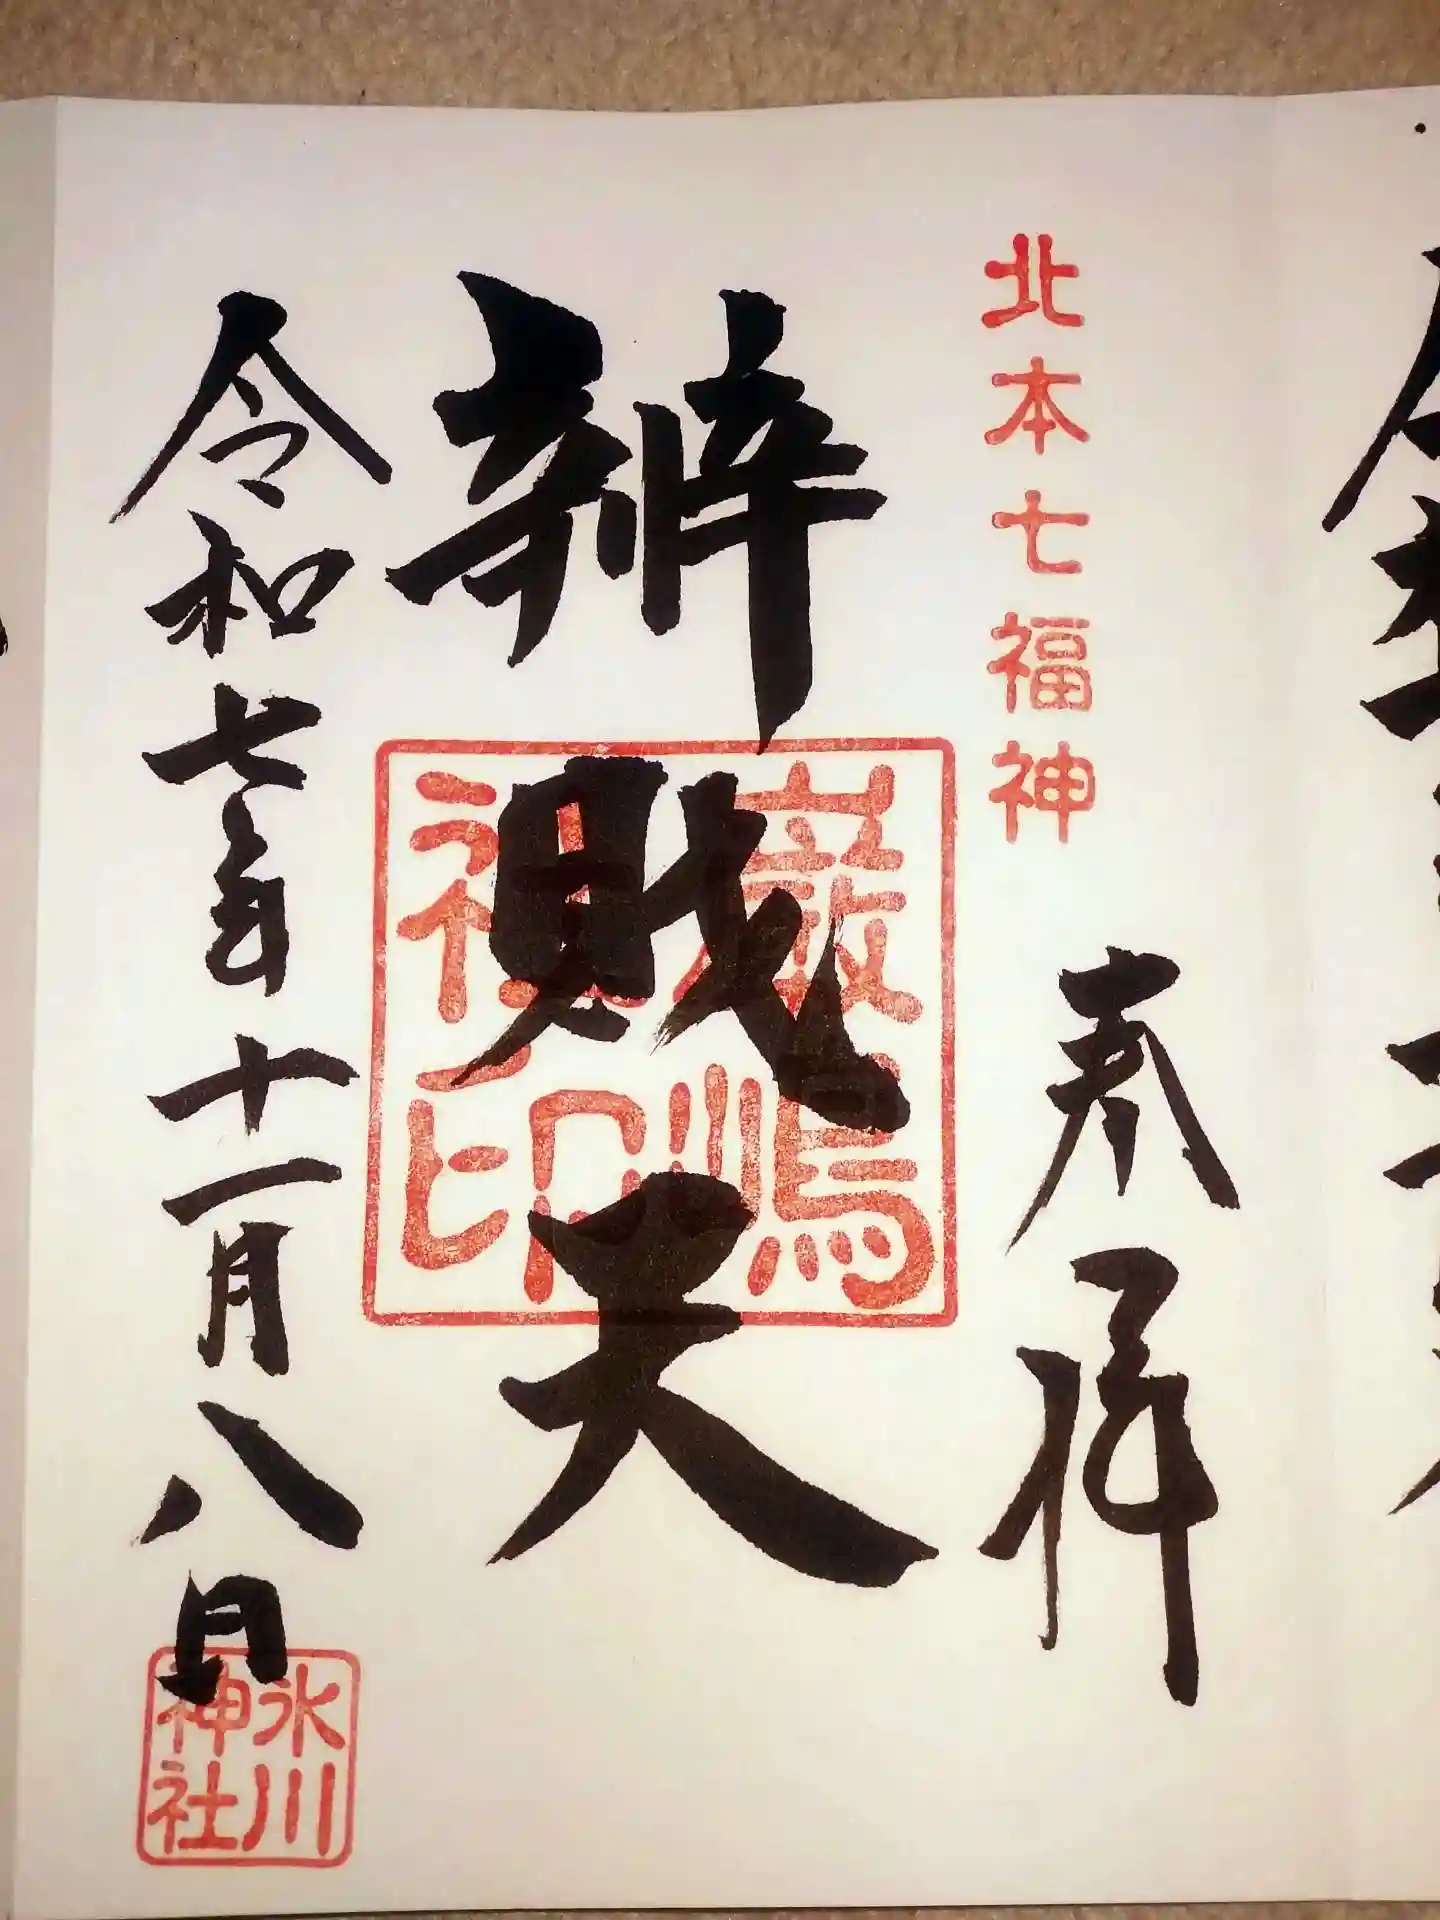 北本七福神
奉拝
辨財天
巌嶋
神印
令和七年十一月八日
氷川
神社